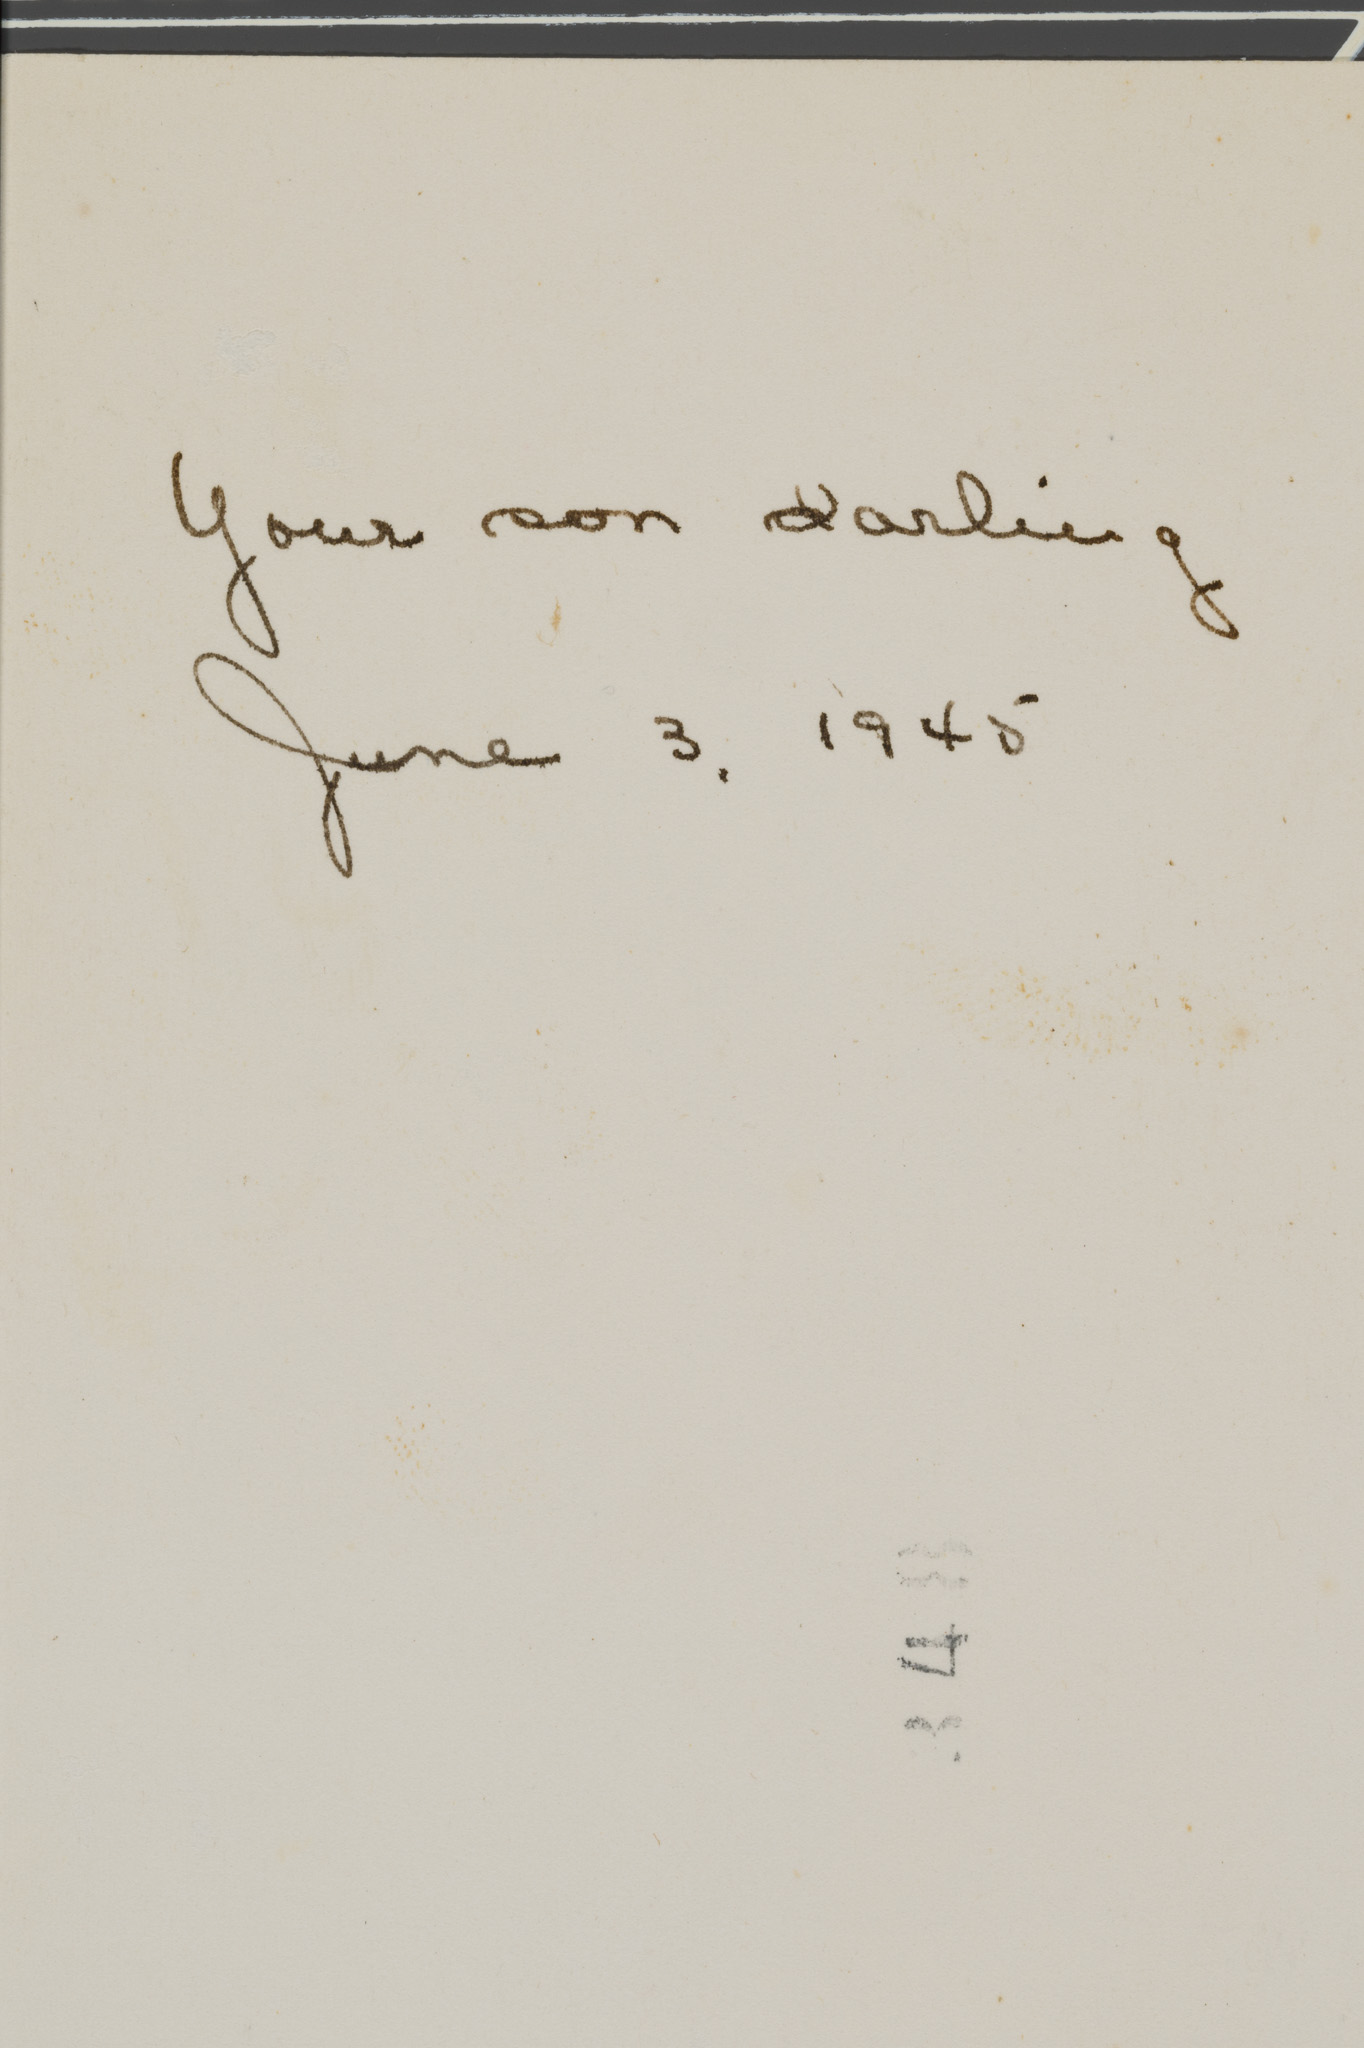 Your son darling
June 3, 1945